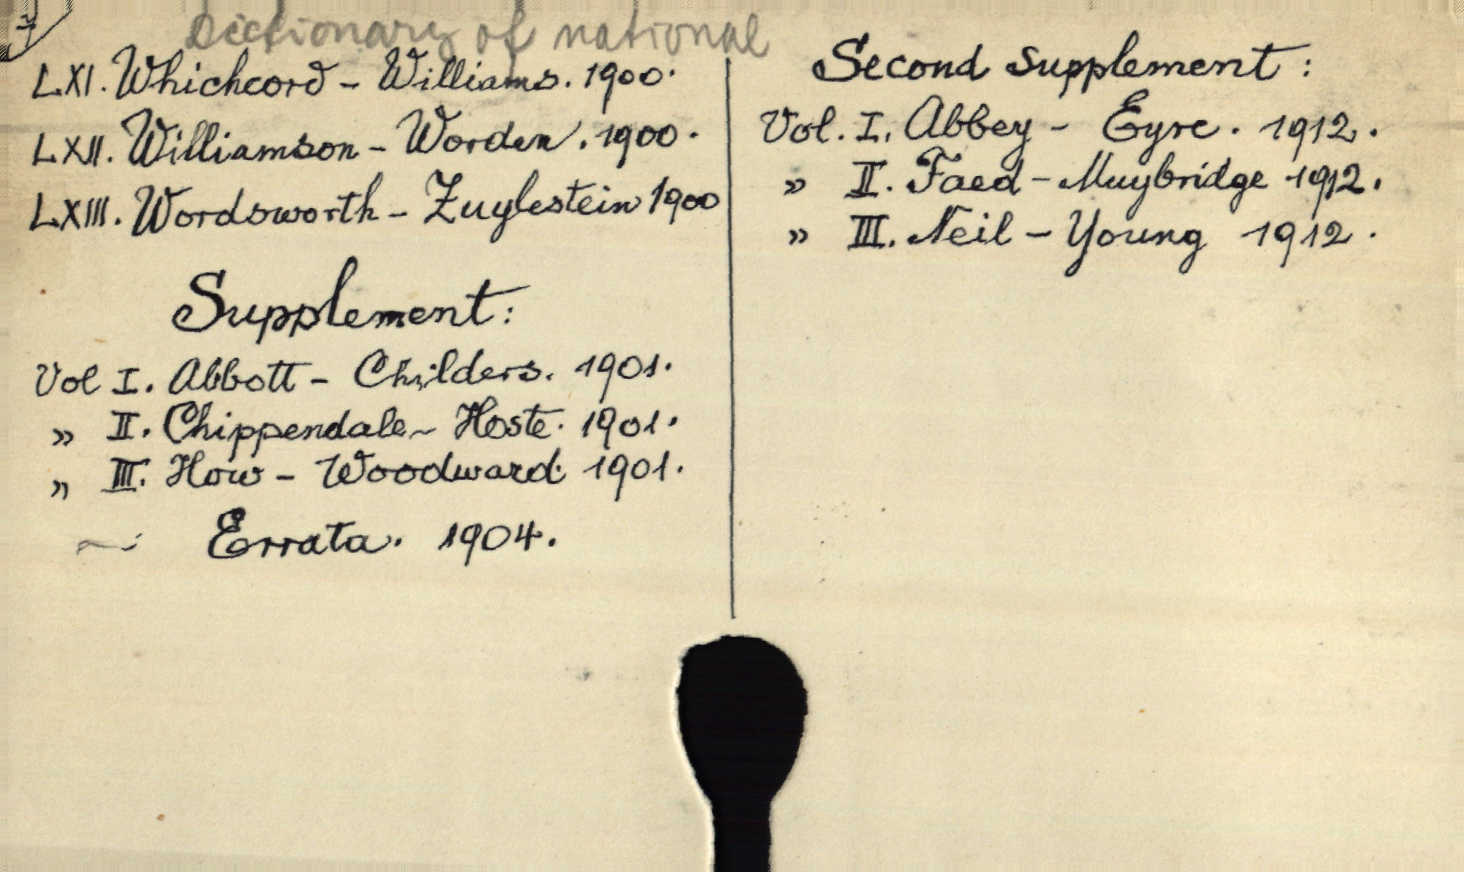 7
Dictionary of national
LXI. Whichcord - Williams. 1900.
LXII. Williamson - Worden. 1900.
LXIII. Wordsworth - Zuylestein 1900
Supplement:
Vol I. Abbott - Childers. 1901.
» II. Chippendale - Hoste. 1901.
» III. How - Woodward. 1901.
Errata. 1904.
Second supplement:
Vol. I. Abbey - Eyre. 1912.
» II. Faed - Muybridge 1912.
» III. Neil - Young 1912.